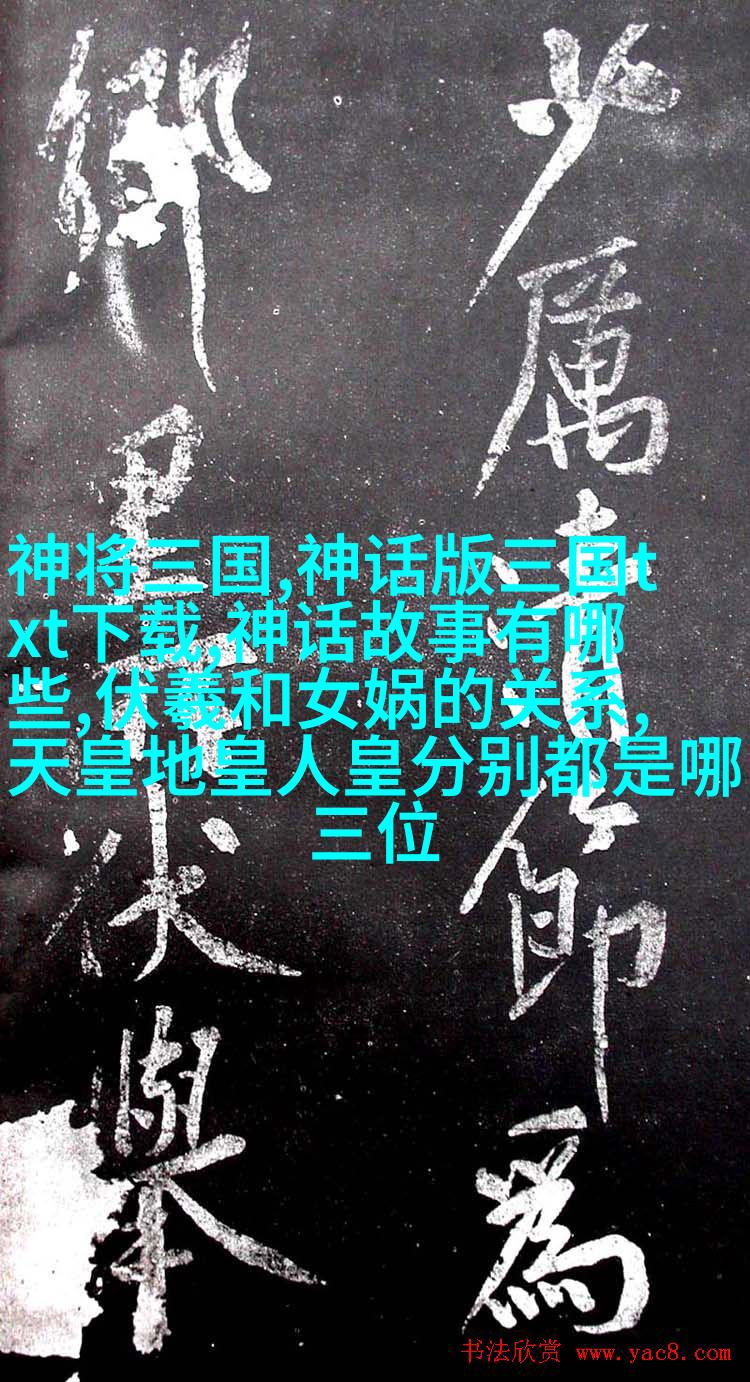 少厲清節為
鄉里所伏舉
神将三国,神话版三国t
xt下载,神话故事有哪
些,伏羲和女娲的关系,
天皇地皇人皇分别都是哪
三位
书法欣赏 www.yac8.com